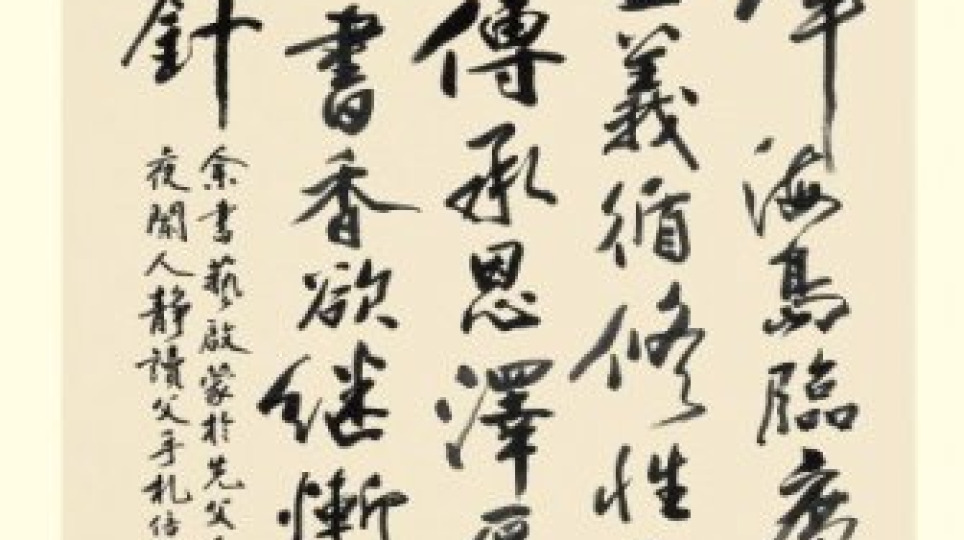 海島臨
義循修性
傳承恩澤
書香欲继慚
針
余書藝啟蒙於先父
夜闌人靜讀父手札